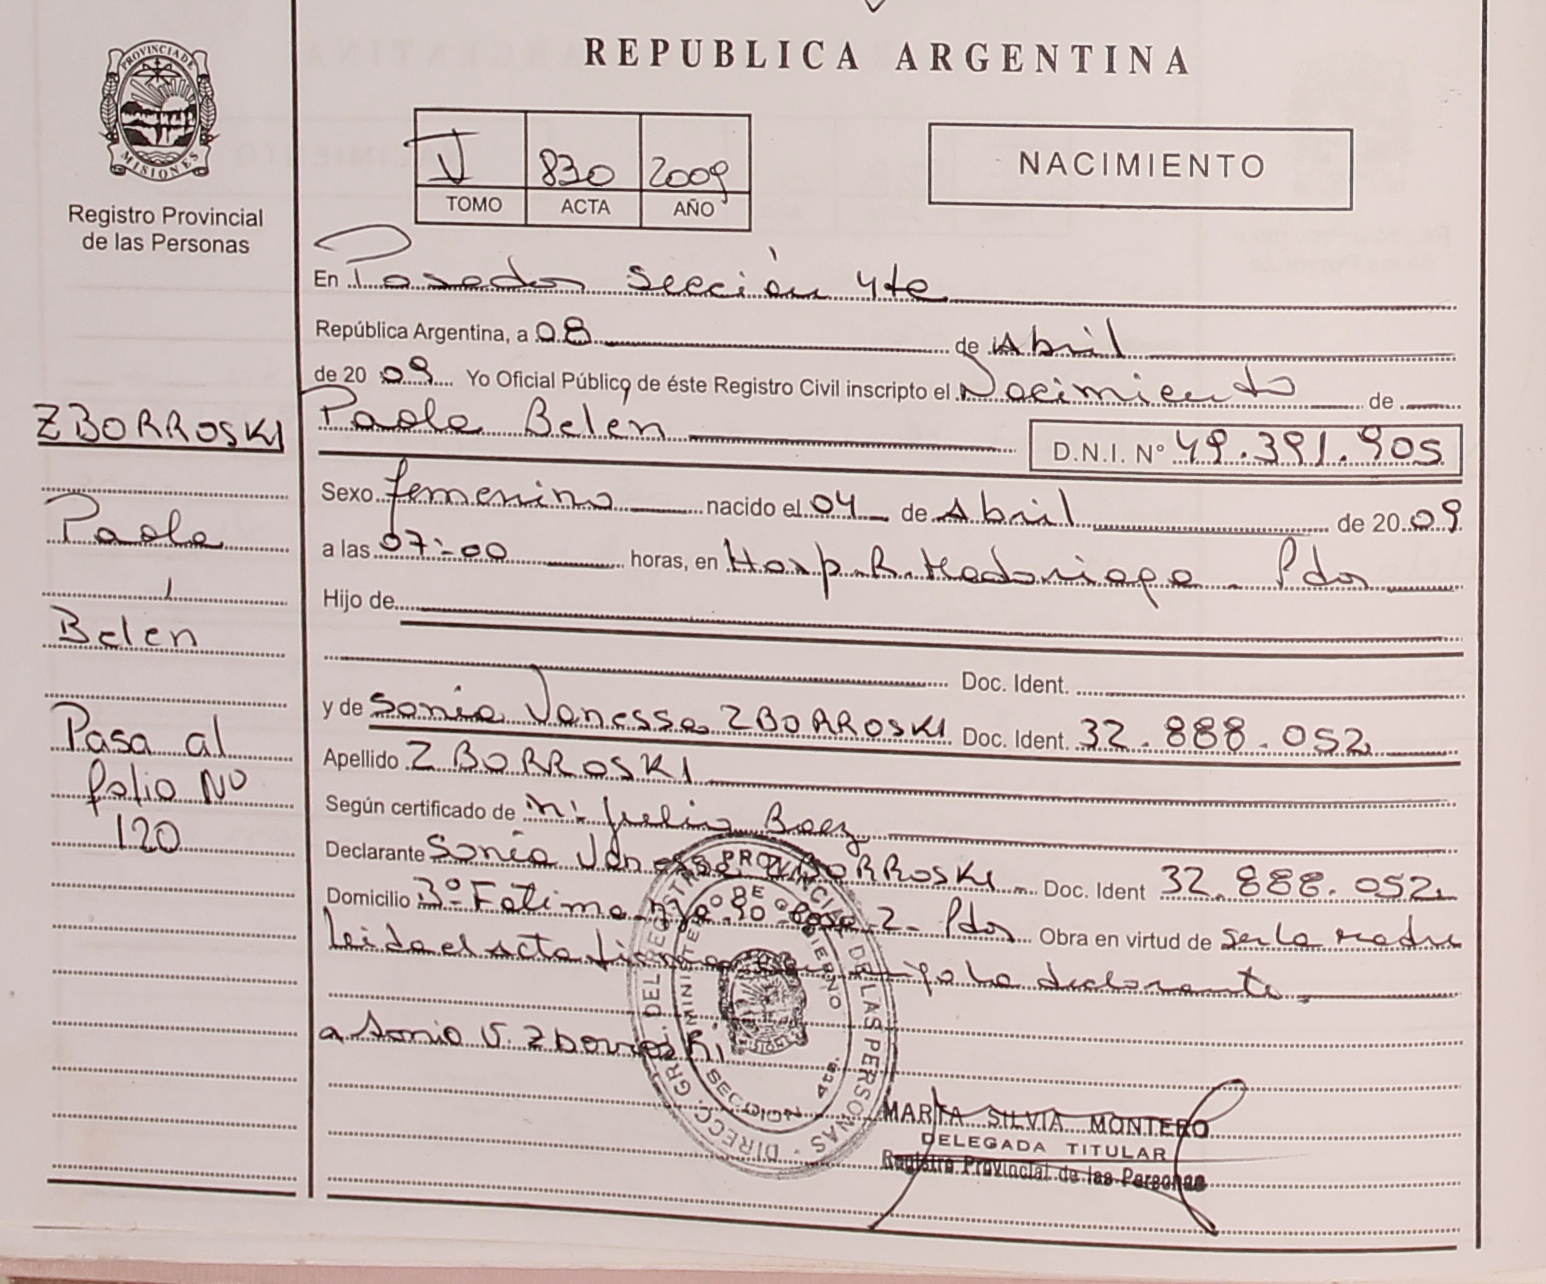 PROVINCIA DE
MISIONES
Registro Provincial
de las Personas
ZBORROSKI
Paola
Belen
Pasa al
folio Nº
120
REPUBLICA ARGENTINA
V 830 2009
TOMO ACTA AÑO
NACIMIENTO
En Posadas Sección 4te
República Argentina, a 08 de Abril
de 20 09 Yo Oficial Público de éste Registro Civil inscripto el Nacimiento de
Paola Belén D.N.I. Nº 49.391.905
Sexo femenino nacido el 04 de Abril de 20 09
a las 07:00 horas, en Hosp. R. Madariaga - Pdas
Hijo de
Doc. Ident.
y de Sonia Vanessa ZBORROSKI Doc. Ident. 32.888.052
Apellido ZBORROSKI
Según certificado de Baez
Declarante Sonia Vanessa ZBORROSKI Doc. Ident 32.888.052
Domicilio Bº Fatima Mza 90 Casa 2 - Pdas Obra en virtud de ser la madre
Leida el acta firma la declarante
a Sonia V. Zborroski
DIRECC. GRAL. DEL REGISTRO PROVINCIAL DE LAS PERSONAS
MINISTERIO DE GOBIERNO
SECCION 4ta.
MARTA SILVIA MONTERO
DELEGADA TITULAR
Registro Provincial de las Personas